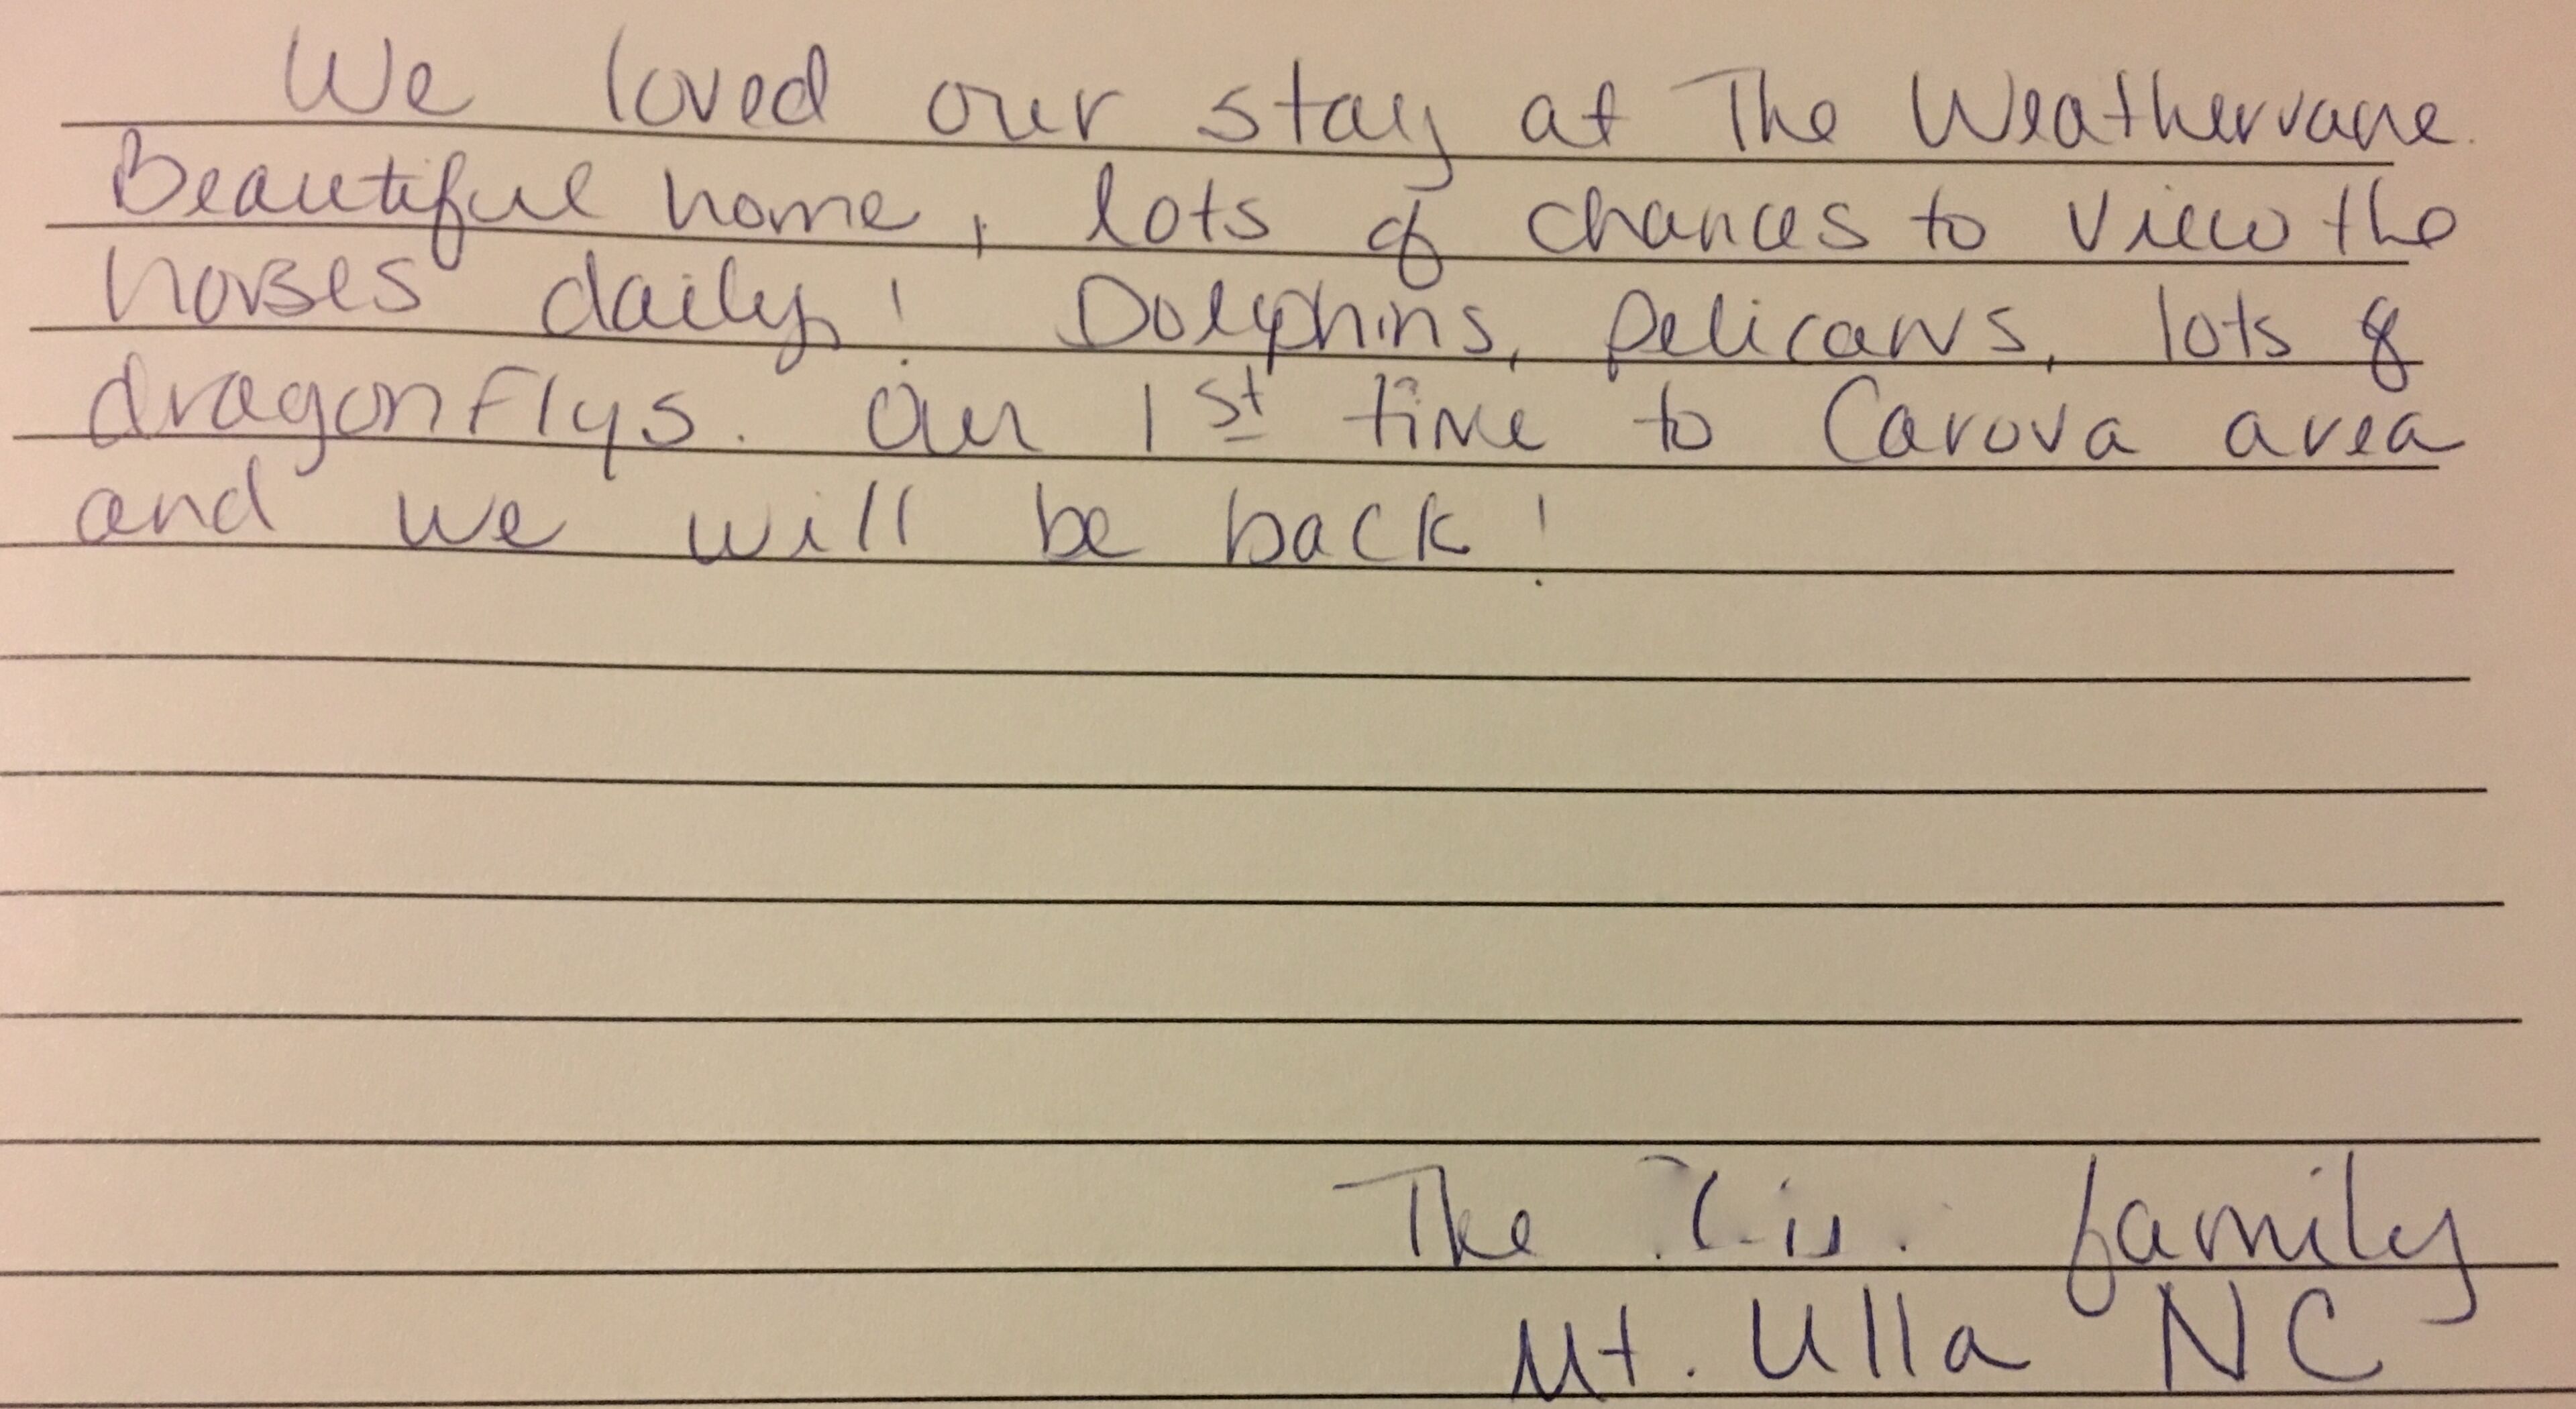 We loved our stay at The Weathervane.
Beautiful home, lots of chances to view the
horses daily! Dolphins, pelicans, lots of
dragonFlys. Our 1st time to Carova area
and we will be back!
The family
Mt. Ulla NC